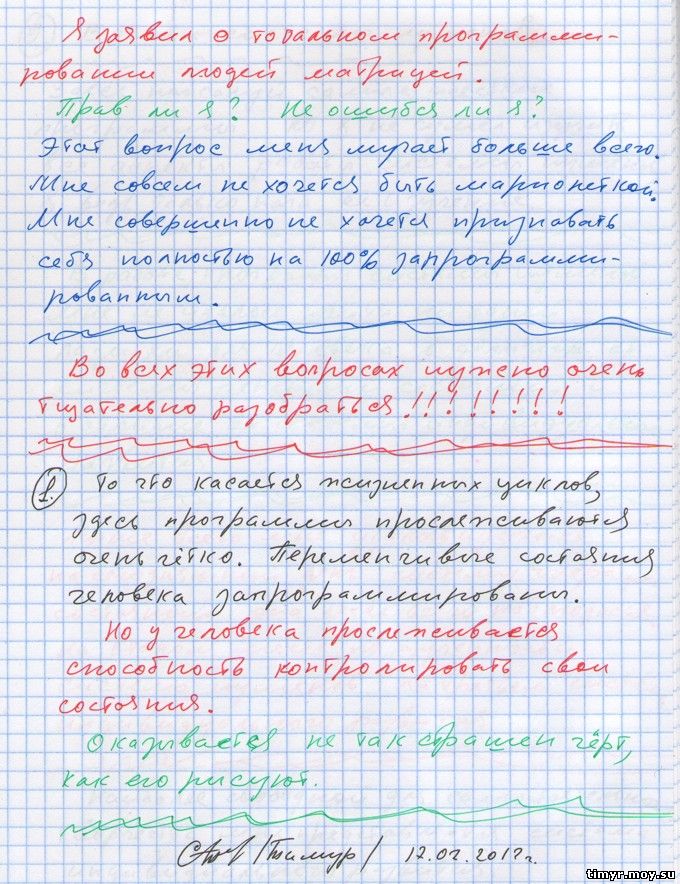 Я заявил о тотальном программи-
ровании людей матрицей.
Прав ли я? Не ошибся ли я?
Этат вопрос меня мучает больше всего.
Мне совсем не хочется быть марионеткой.
Мне совершенно не хочется признавать
себя полностью на 100% запрограмми-
рованным.
Во всех этих вопросах нужно очень
тщательно разобраться!!!!!!!!
1. То что касается жизненных циклов,
здесь программы прослеживаются
очень чётко. Переменчивые состояния
человека запрограммированы.
Но у человека прослеживается
способность контролировать свои
состояния.
Оказывается не так страшен чёрт,
как его рисуют.
/Тимур/ 17.02.2017г.
timyr.moy.su